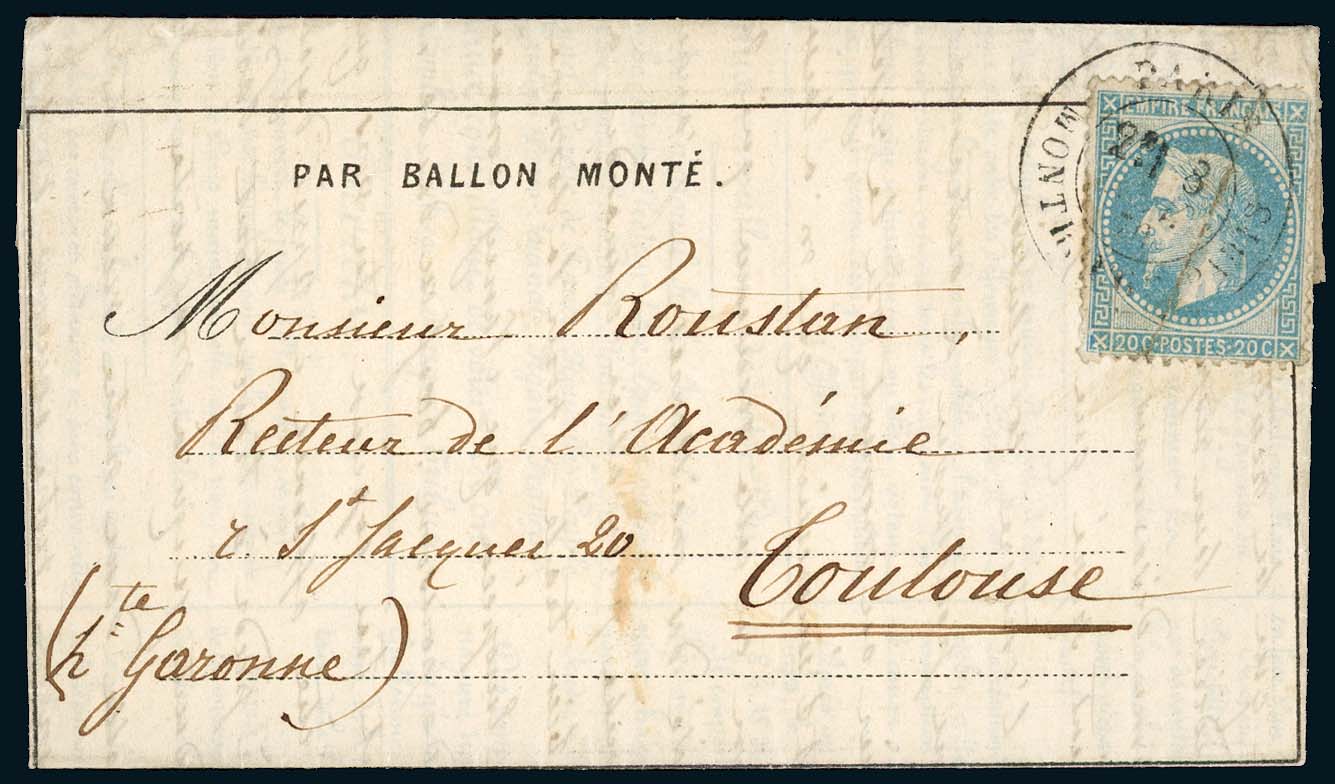 PAR BALLON MONTÉ.
EMPIRE FRANÇAIS
20 C POSTES 20 C
Monsieur Roustan,
Recteur de l'Académie
r. St Jacques 20
Toulouse
(hte Garonne)